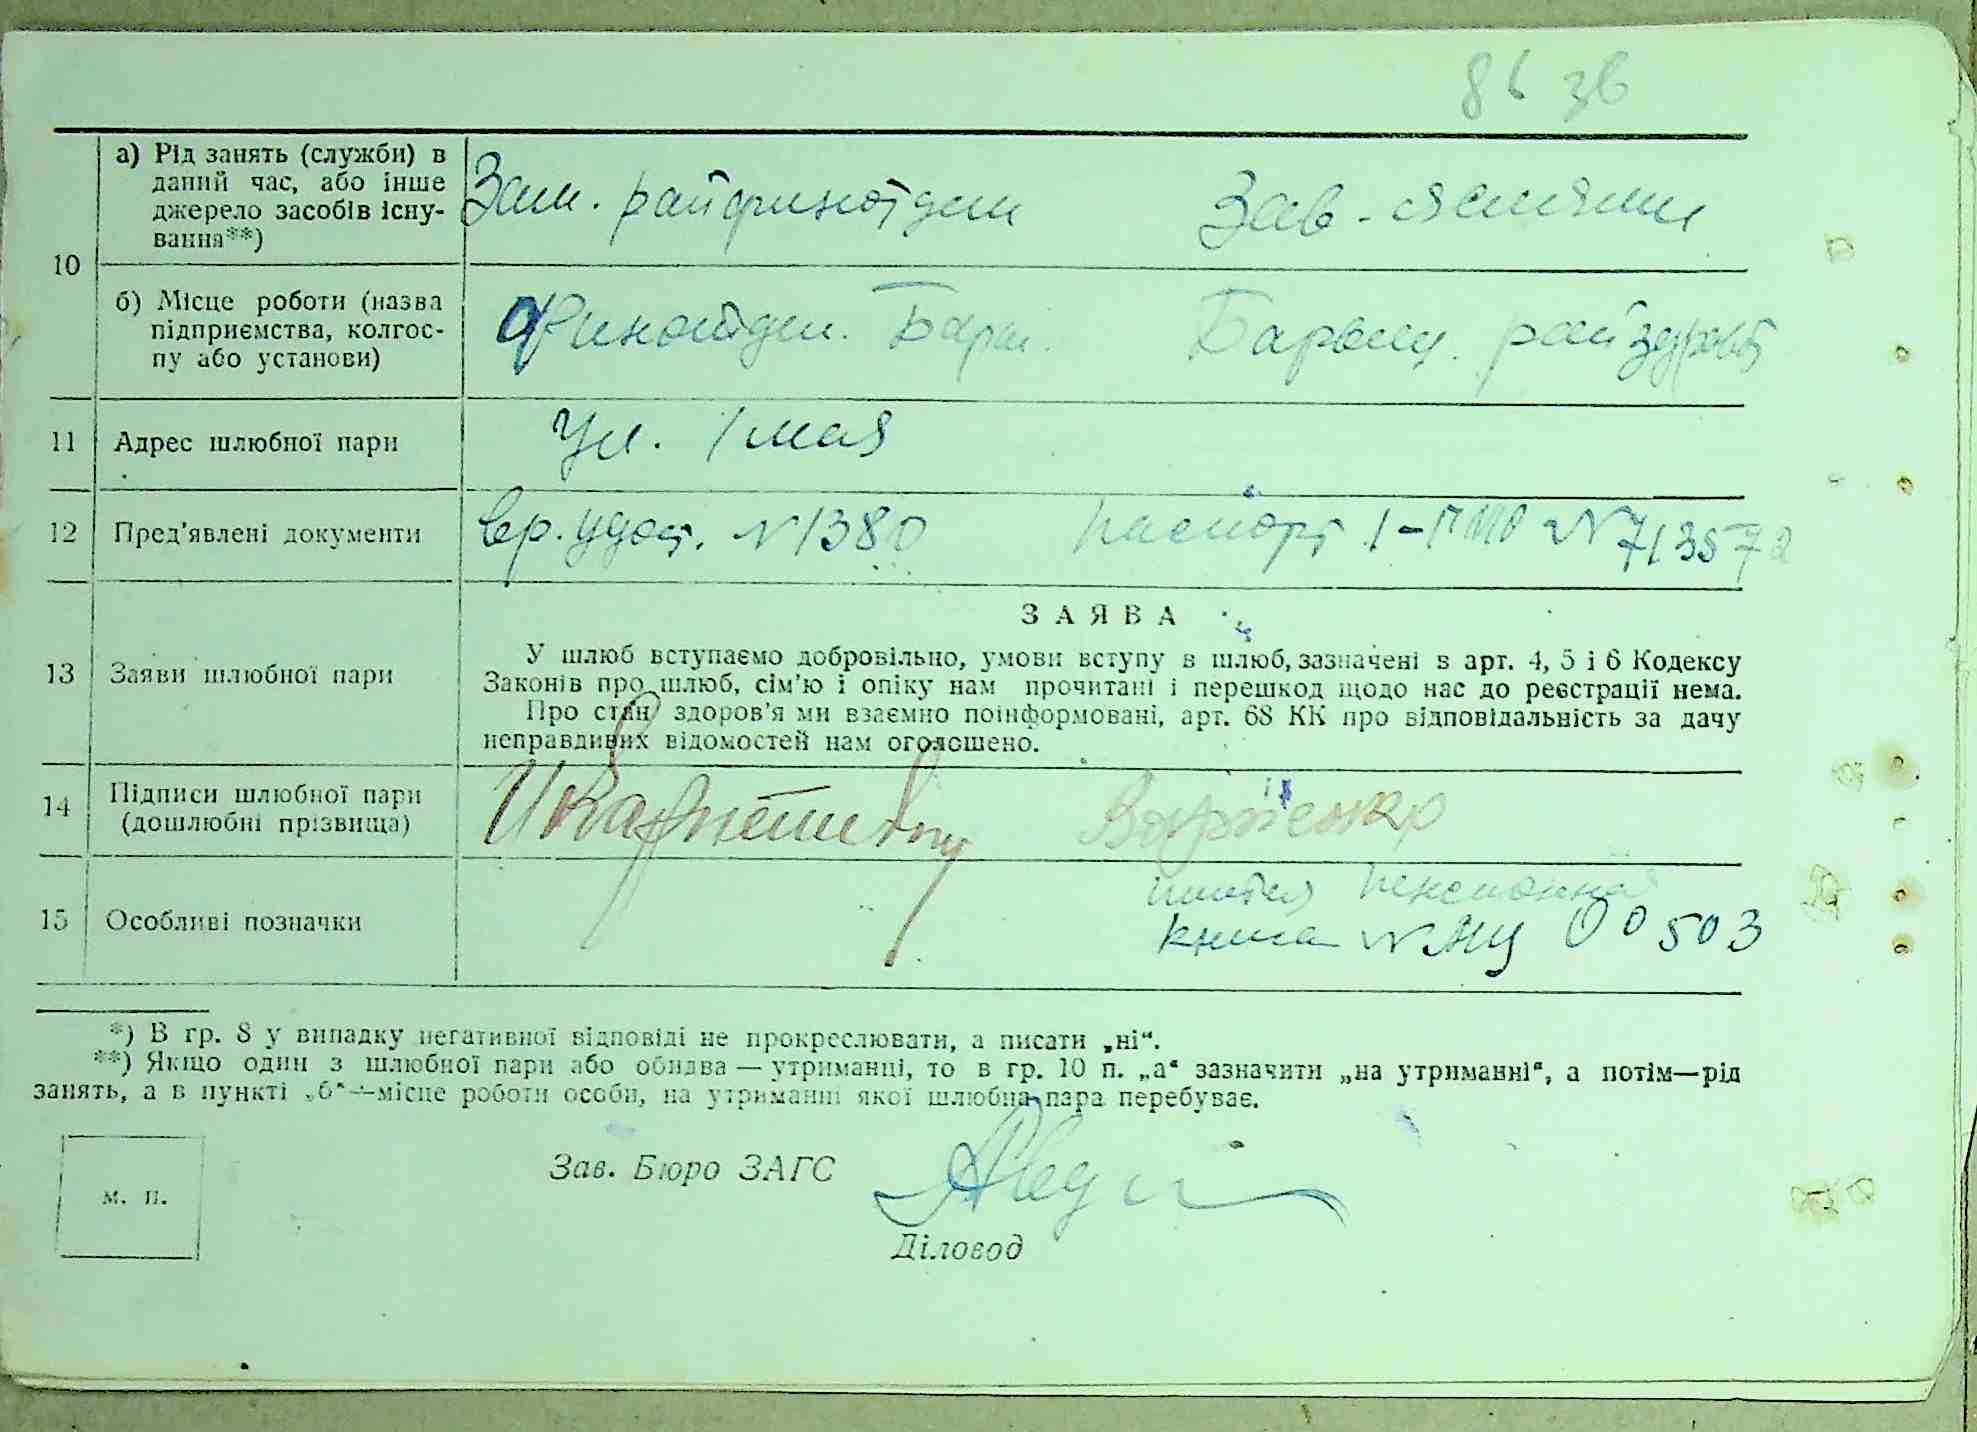 86 зв
10
а) Рід занять (служби) в
даний час, або інше
джерело засобів існу-
вання**)
Зам. райфинотдел
Зав. яслями
б) Місце роботи (назва
підприємства, колгос-
пу або установи)
Финотдел.
Барвец. райздрав
11
Адрес шлюбної пари
Ул. 1 мая
12
Пред'явлені документи
вр. удост. № 1380
паспорт № 713572
13
Заяви шлюбної пари
ЗАЯВА
У шлюб вступаємо добровільно, умови вступу в шлюб, зазначені в арт. 4, 5 і 6 Кодексу
Законів про шлюб, сім'ю і опіку нам прочитані і перешкод щодо нас до реєстрації нема.
Про стан здоров'я ми взаємно поінформовані, арт. 68 КК про відповідальність за дачу
неправдивих відомостей нам оголошено.
14
Підписи шлюбної пари
(дошлюбні прізвища)
15
Особливі позначки
пенсионная
книга № 00503
*) В гр. 8 у випадку негативної відповіді не прокреслювати, а писати „ні“.
**) Якщо один з шлюбної пари або обидва — утриманці, то в гр. 10 п. „а“ зазначити „на утриманні“, а потім—рід
занять, а в пункті „б“—місце роботи особи, на утриманні якої шлюбна пара перебуває.
Зав. Бюро ЗАГС
м. п.
Діловод